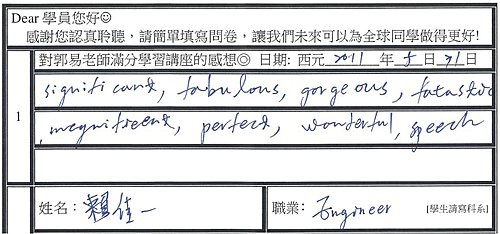 Dear 學員您好☺
感謝您認真聆聽，請簡單填寫問卷，讓我們未來可以為全球同學做得更好!
對郭易老師滿分學習講座的感想◎ 日期: 西元 2011 年 5 月 21 日
significant, fabulous, gorgeous, fatastic
1
, megnifreent, perfect, wonderful, speech
姓名: 賴佳一 職業: Engineer [學生請寫科系]